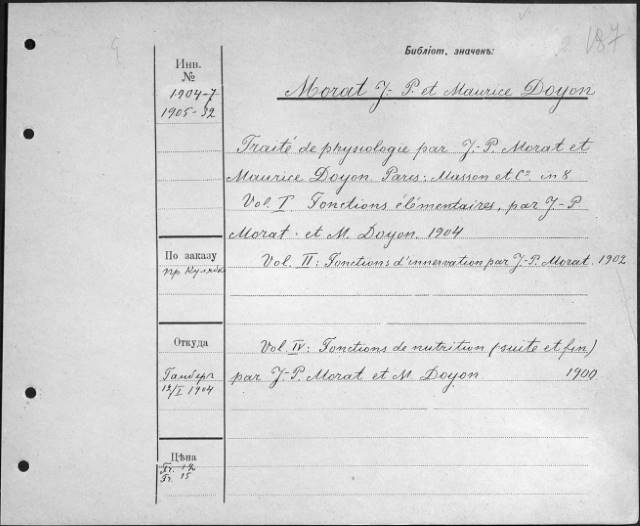 187
Библiот. значекъ:
Инв.
№
1904-7
1905-32
Morat J.-P. et Maurice Doyon
Traité de physiologie par J.-P. Morat et
Maurice Doyon. Paris: Masson et Cº. in 8
Vol. I Fonctions élémentaires, par J.-P.
Morat. et M. Doyon. 1904
По заказу
пр Кулябк
Vol. II: Fonctions d'innervation par J.-P. Morat. 1902
Откуда
Vol. IV: Fonctions de nutrition (suite et fin)
par J.-P. Morat et M. Doyon 1900
1904
Цѣна
Fr. 12
Fr. 15